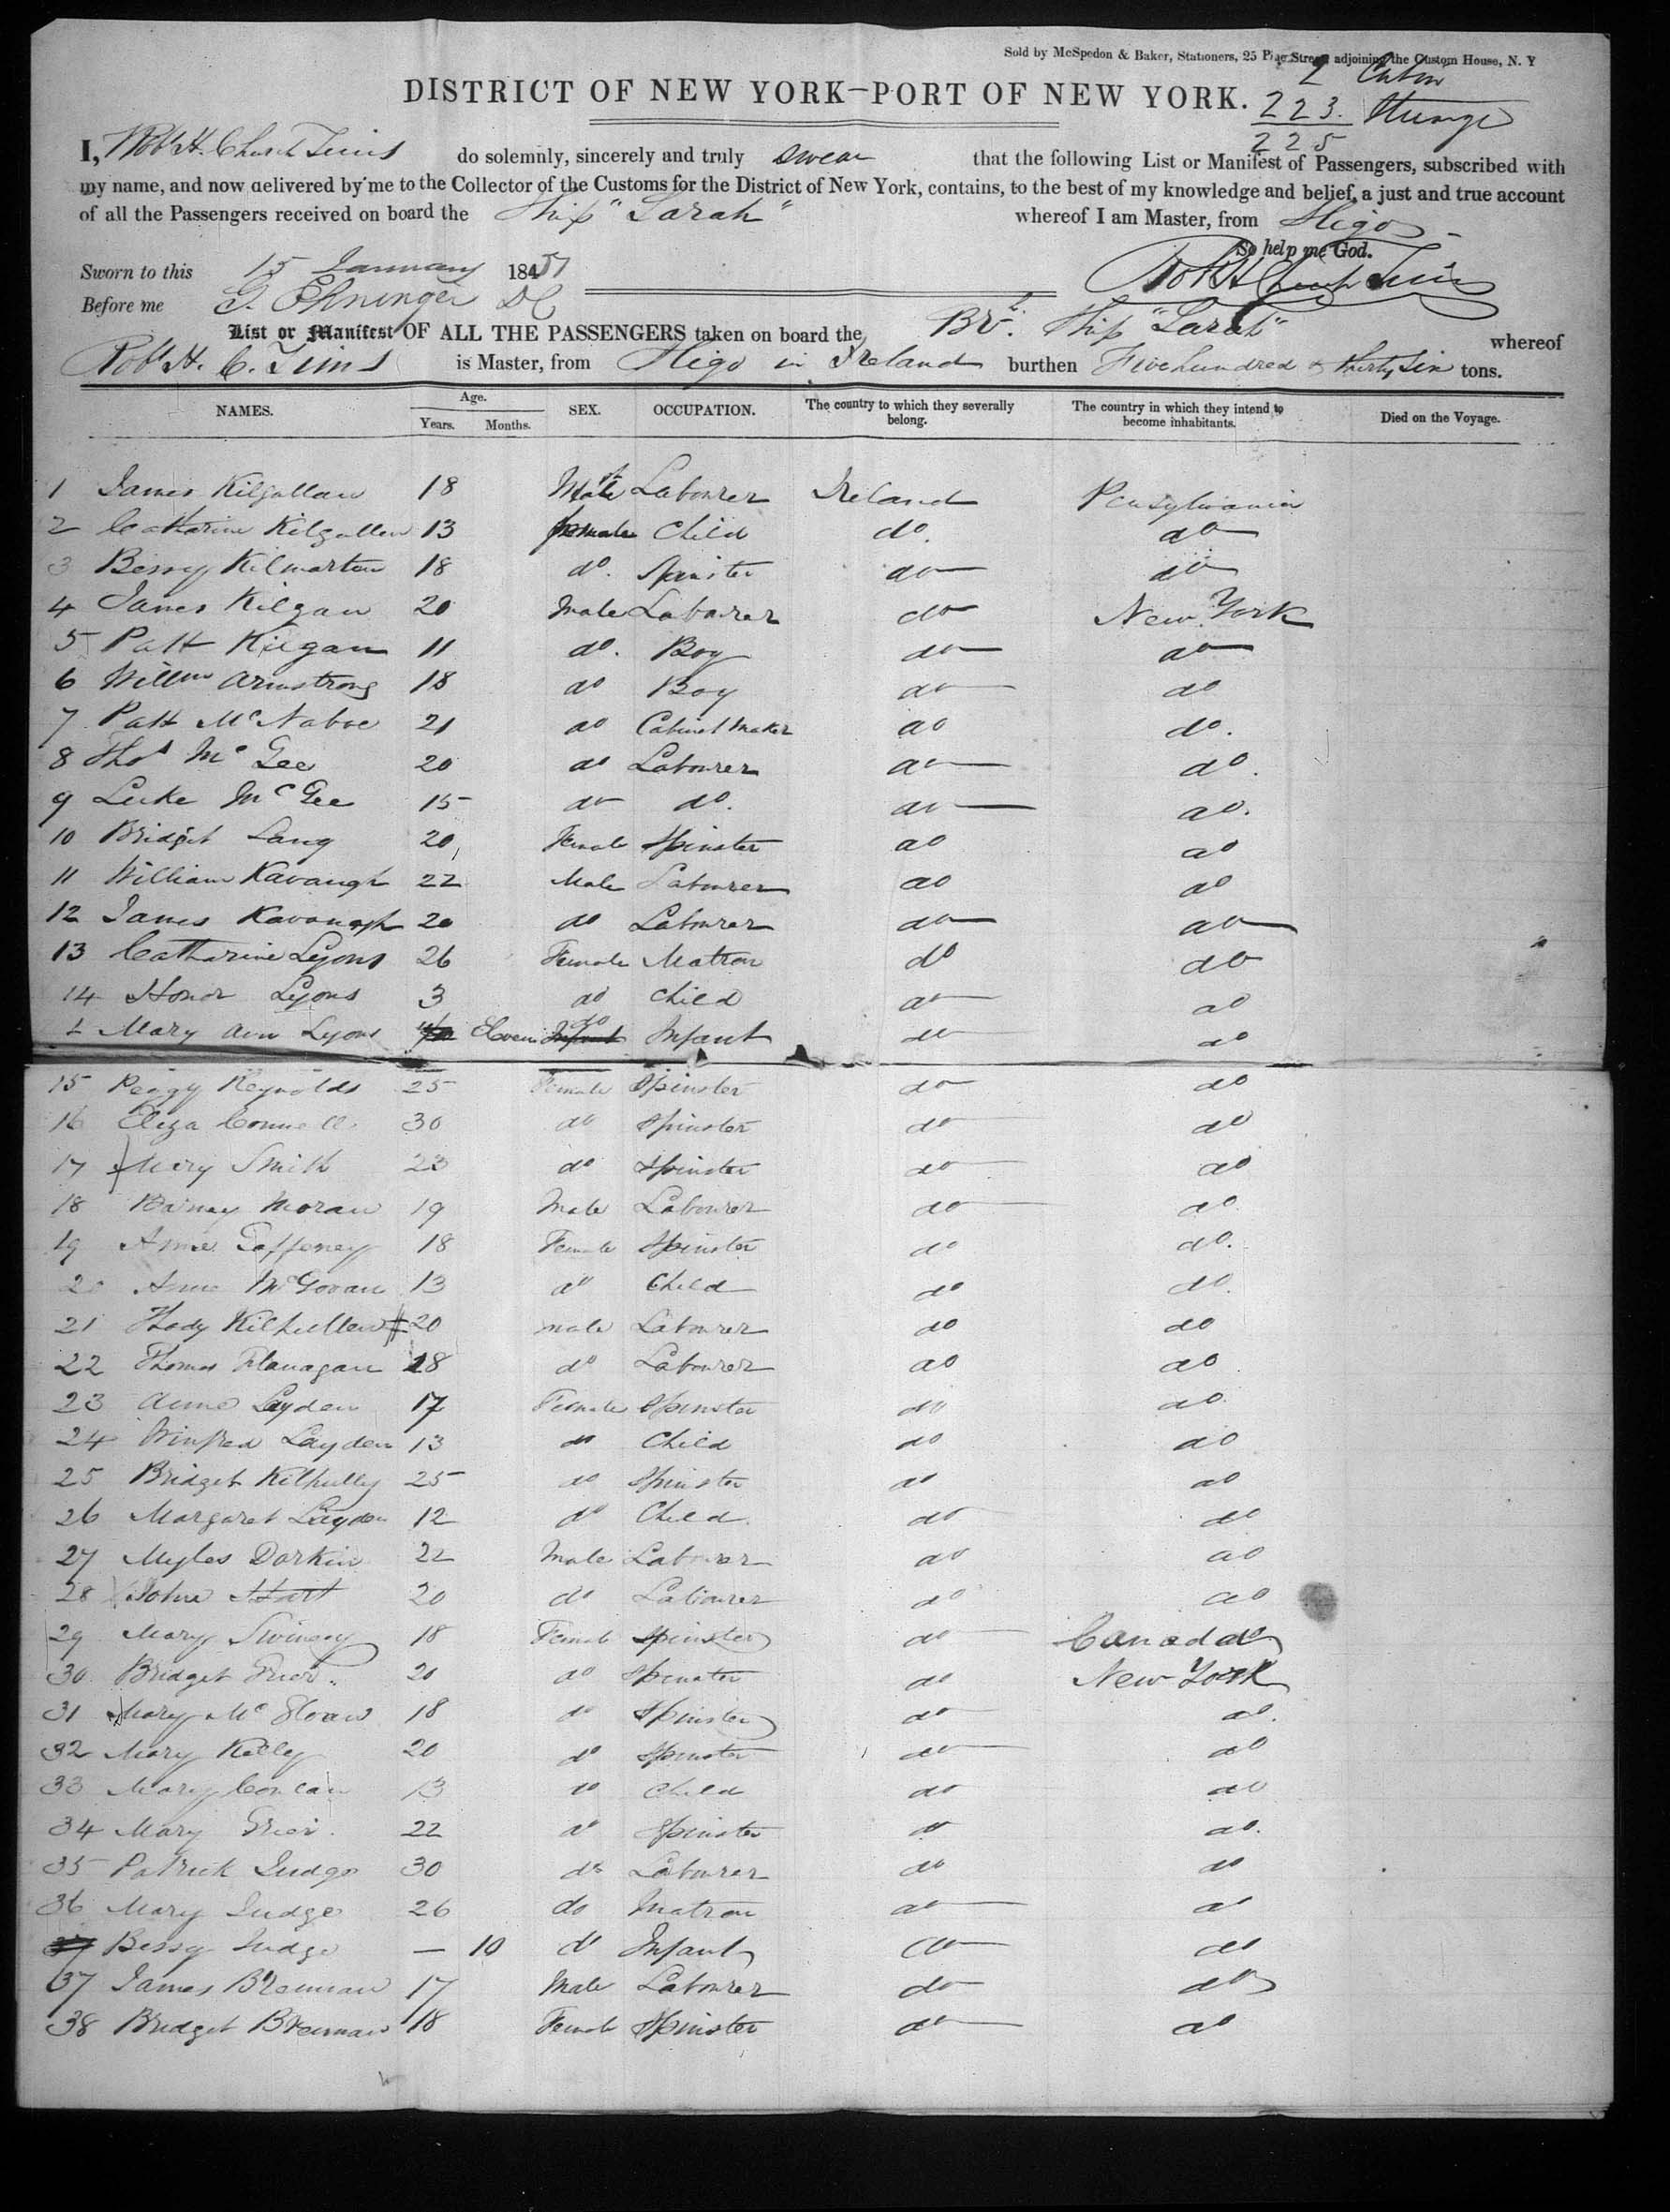 Sold by McSpedon & Baker, Stationers, 25 Pine Street adjoining the Custom House, N. Y
2 Cabin
DISTRICT OF NEW YORK—PORT OF NEW YORK.
223.
225
I, Robt H. Church do solemnly, sincerely and truly swear that the following List or Manifest of Passengers, subscribed with
my name, and now delivered by me to the Collector of the Customs for the District of New York, contains, to the best of my knowledge and belief, a just and true account
of all the Passengers received on board the Ship "Sarah" whereof I am Master, from Sligo
So help me God.
Sworn to this 15 January 18
Before me G. Ehninger DC
List or Manifest OF ALL THE PASSENGERS taken on board the Br. Ship "Sarah" whereof
Robt H. C. is Master, from Sligo in Ireland burthen Five hundred & thirty Six tons.
NAMES. Age. Years. Months. SEX. OCCUPATION. The country to which they severally belong. The country in which they intend to become inhabitants. Died on the Voyage.
1 James Kilgallan 18 Male Labourer Ireland Pensylvania
2 Catharine Kilgallen 13 female Child do. do
3 Bessy Kilmartin 18 do. Spinster do do
4 James Kilgan 20 Male Labourer do New York
5 Patt Kilgan 11 do. Boy do do
6 Willm Armstrong 18 do Boy do do
7 Patt McNaboe 21 do Cabinet Maker do do.
8 Thos McGee 20 do Labourer do do.
9 Luke McGee 15 do do. do do.
10 Bridget Lang 20 Female Spinster do do
11 William Kavanagh 22 Male Labourer do do
12 James Kavanagh 20 do Labourer do do
13 Catharine Lyons 26 Female Matron do do
14 Honor Lyons 3 do Child do do
Mary Ann Lyons Eleven do Infant do do
15 Peggy Reynolds 25 Female Spinster do do
16 Eliza Connell 30 do Spinster do do
17 Mary Smith 23 do Spinster do do
18 Barney Moran 19 Male Labourer do do
19 Anne Gaffeney 18 Female Spinster do do.
20 Anne McGovan 13 do Child do do.
21 Thady Kilhullen 20 male Labourer do do
22 Thomas Flanagan 18 do Labourer do do
23 Anne Layden 17 Female Spinster do do
24 Winfred Layden 13 do Child do do
25 Bridget Kilhully 25 do Spinster do do
26 Margaret Layden 12 do Child do do
27 Myles Dorkin 22 Male Labourer do do
28 John Hart 20 do Labourer do do
29 Mary Swiney 18 Female Spinster do Canada
30 Bridget Grier 20 do Spinster do New York
31 Mary 18 do Spinster do do.
32 Mary Kelly 20 do Spinster do do
33 Mary Concan 13 do Child do do
34 Mary Grier. 22 do Spinster do do.
35 Patrick Judge 30 do Labourer do do
36 Mary Judge 26 do Matron do do
Bessy Judge — 10 do Infant do do
37 James Brennan 17 Male Labourer do do
38 Bridget Brennan 18 Female Spinster do do